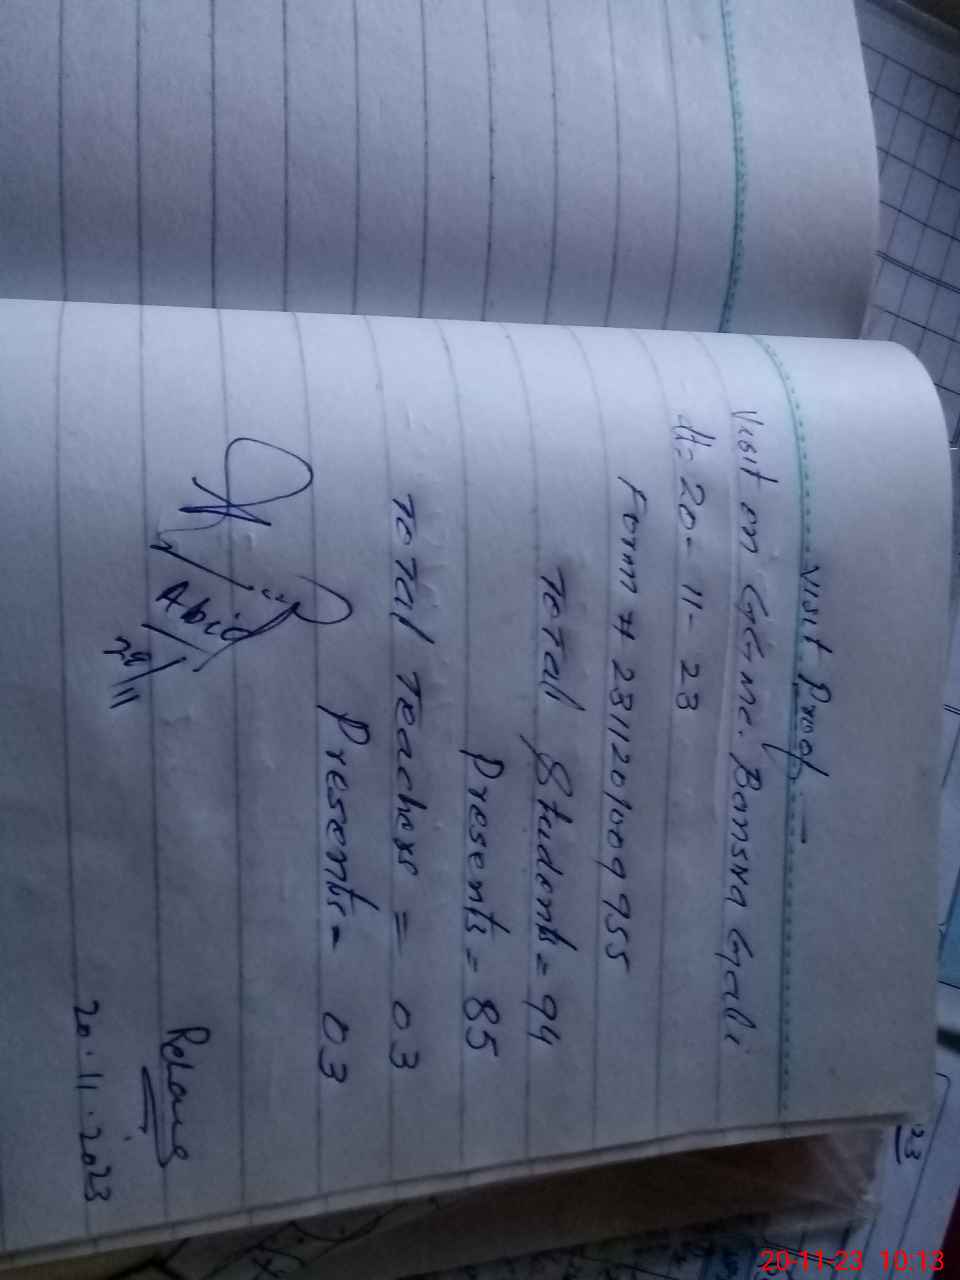 Visit Proof
Visit on GGMC. Bamsna Gali
dt: 20-11-23
Form # 231120100 9955
Total Students = 94
Presents = 85
Total Teachers = 03
Presents = 03
Abid
20/11
20.11.2023
23
20-11-23 10:13